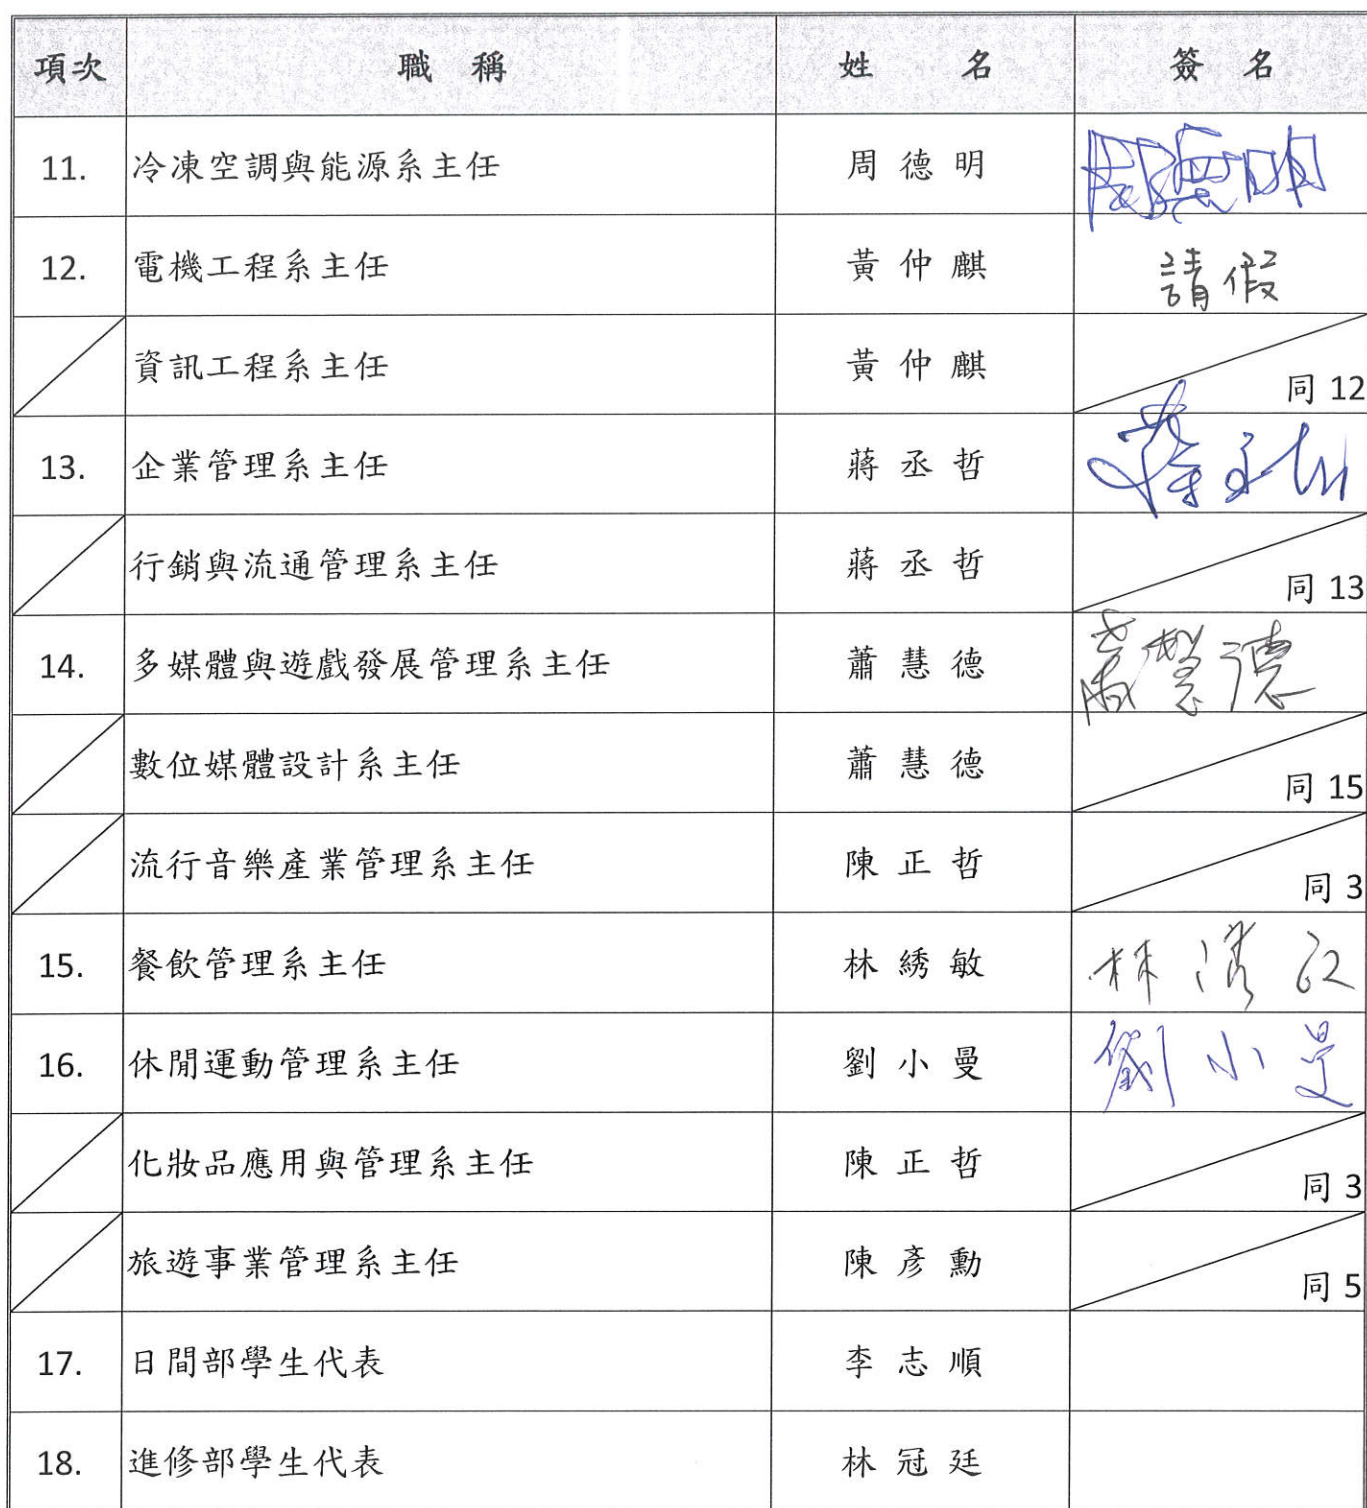 項次 職稱 姓名 簽名
11. 冷凍空調與能源系主任 周德明 周德明
12. 電機工程系主任 黃仲麒 請假
資訊工程系主任 黃仲麒 同 12
13. 企業管理系主任 蔣丞哲 蔣丞哲
行銷與流通管理系主任 蔣丞哲 同 13
14. 多媒體與遊戲發展管理系主任 蕭慧德 蕭慧德
數位媒體設計系主任 蕭慧德 同 15
流行音樂產業管理系主任 陳正哲 同 3
15. 餐飲管理系主任 林綉敏 林
16. 休閒運動管理系主任 劉小曼 劉小曼
化妝品應用與管理系主任 陳正哲 同 3
旅遊事業管理系主任 陳彥勳 同 5
17. 日間部學生代表 李志順
18. 進修部學生代表 林冠廷